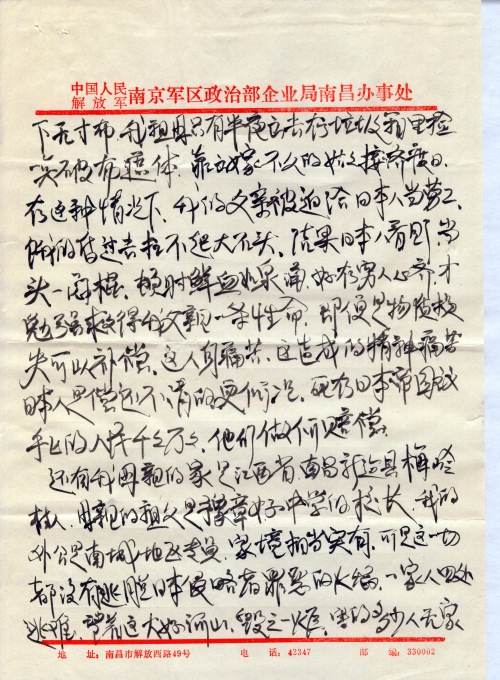 中国人民
解放军 南京军区政治部企业局南昌办事处
下无寸布，我祖母只有半夜立去在垃圾里捡
一点破布蔽体，靠出嫁不久的姑姑接济度日，
在这种情况下，我的父亲被迫给日本人当劳工，
有过去扛不起大石头，结果日本人看见，当
头一闷棍，顿时鲜血如泉涌，好在穷人心齐，才
勉强救得我父亲一条性命，即便是物质损
失可以补偿，这人身痛苦，这造成的精神痛苦
日本人是偿还不清的，更何况，死在日本帝国战
手上的人民千千万万，他们做何赔偿。
还有我母亲的家是江西省南昌新建县梅岭
村人，母亲的祖父是豫章好子中学的校长，我的
外公是南城地区专员，家境相当实有，可是这一切
都没有逃脱日本侵略者罪恶的火焰，一家人四处
逃难，望着这大好河山，毁之一炬，害的多少人无家
地 址：南昌市解放西路49号 电 话：42347 邮 编：330002